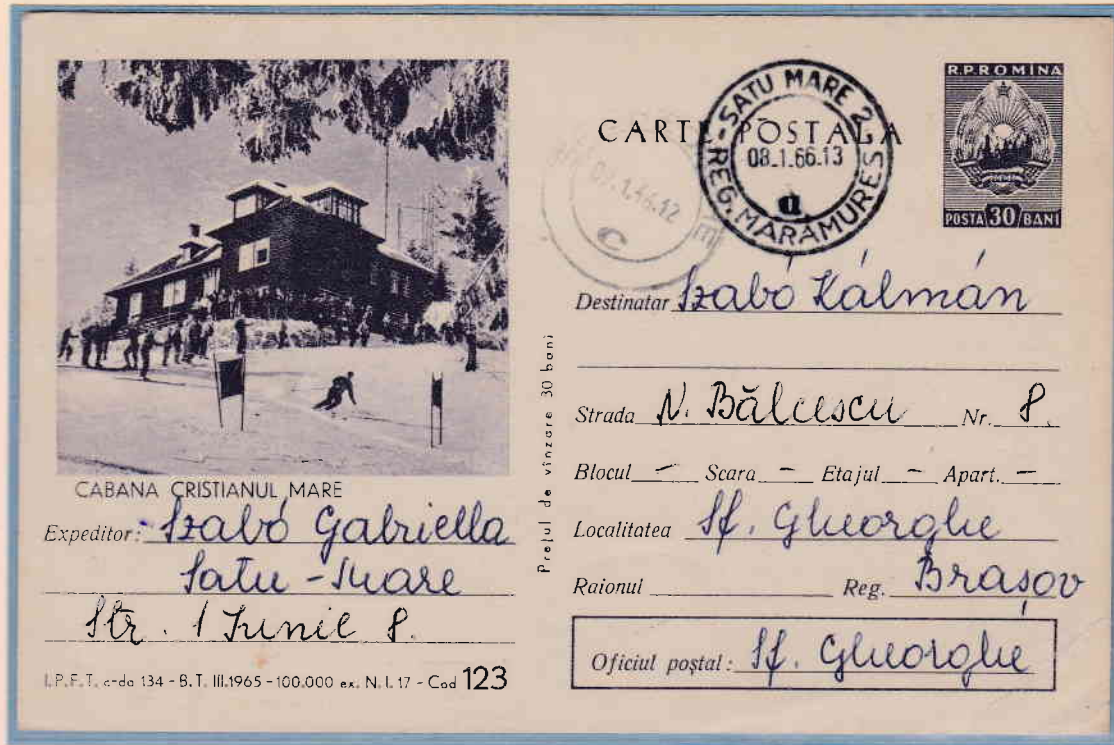 CABANA CRISTIANUL MARE
Expeditor: Szabó Gabriella
Satu-Mare
Str. 1 Iunie 8.
I.P.F.T. c-da 134 - B.T. III.1965 - 100.000 ex. N.I. 17 - Cod 123
Prețul de vînzare 30 bani
CARTE POSTALA
SATU MARE 2
08.1.66.13
d
REG. MARAMUREȘ
.1.66.12
c
R.P.ROMINA
POSTA 30 BANI
Destinatar Szabó Kálmán
Strada N. Bălcescu Nr. 8.
Blocul - Scara - Etajul - Apart. -
Localitatea Sf. Gheorghe
Raionul Reg. Brașov
Oficiul poștal: Sf. Gheorghe